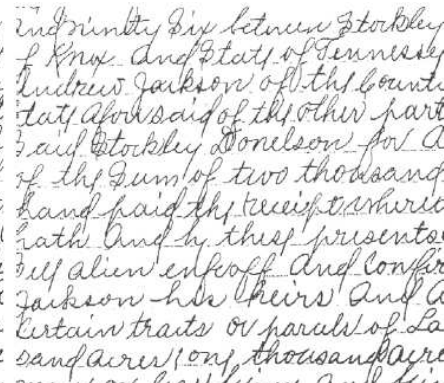 and ninity Six between Stockley
f Knox and State of Tennessey
Andrew Jackson of the Count
tate aforesaid of the other part
Said Stockley Donelson for
of the Sum of two thousand
hand paid the receipt wherei
hath And by these presents
Sell alien enfeoff And Confir
Jackson his heirs And
Certain traits or parcels of La
sand acres (one thousand acre